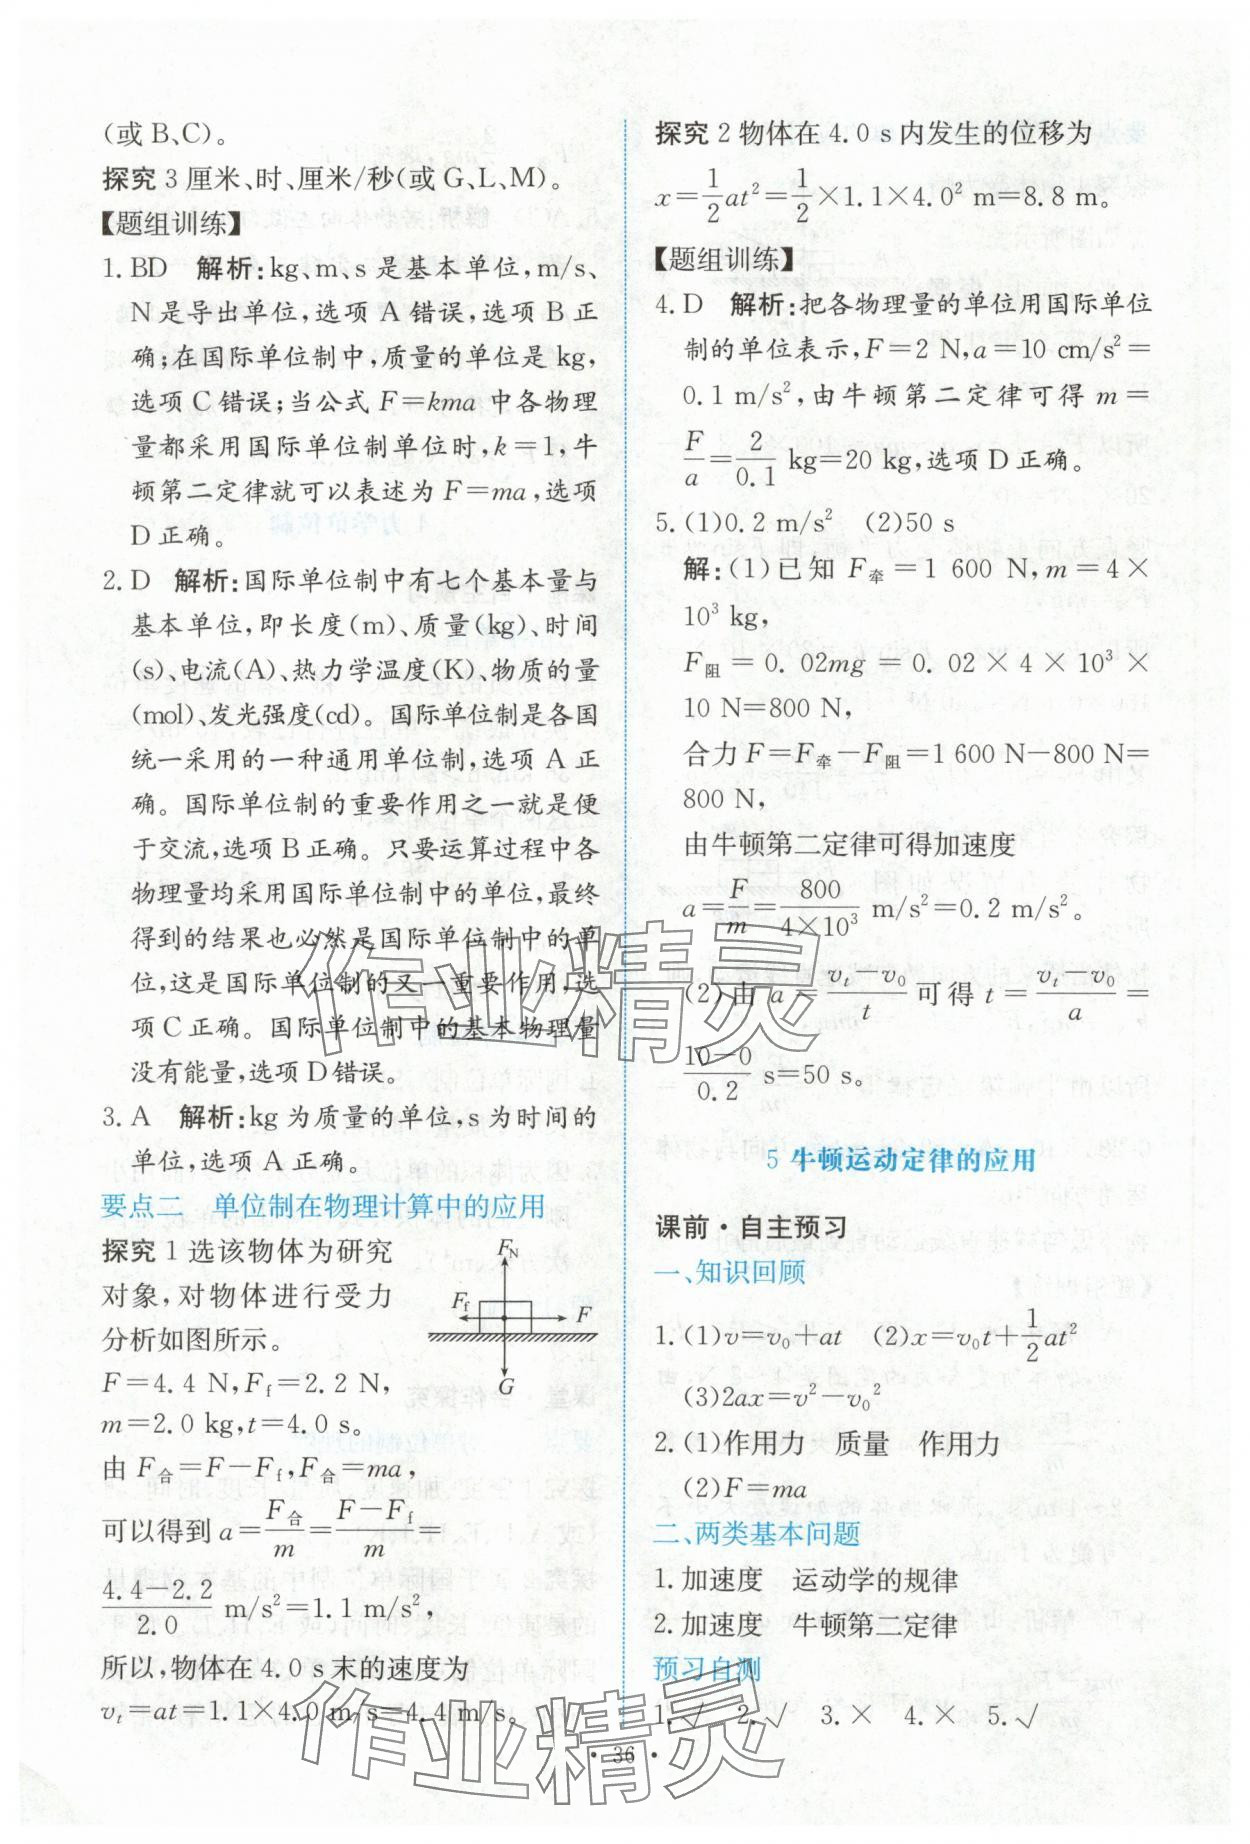 (或B、C)。
探究3 厘米、时、厘米/秒(或G、L、M)。
【题组训练】
1. BD 解析:kg、m、s是基本单位,m/s、
N是导出单位,选项A错误,选项B正
确;在国际单位制中,质量的单位是kg,
选项C错误;当公式F=kma中各物理
量都采用国际单位制单位时,k=1,牛
顿第二定律就可以表述为F=ma,选项
D正确。
2. D 解析:国际单位制中有七个基本量与
基本单位,即长度(m)、质量(kg)、时间
(s)、电流(A)、热力学温度(K)、物质的量
(mol)、发光强度(cd)。国际单位制是各国
统一采用的一种通用单位制,选项A正
确。国际单位制的重要作用之一就是便
于交流,选项B正确。只要运算过程中各
物理量均采用国际单位制中的单位,最终
得到的结果也必然是国际单位制中的单
位,这是国际单位制的又一重要作用,选
项C正确。国际单位制中的基本物理量
没有能量,选项D错误。
3. A 解析:kg为质量的单位,s为时间的
单位,选项A正确。
要点二 单位制在物理计算中的应用
探究1 选该物体为研究
对象,对物体进行受力
分析如图所示。
F_N
F_f
F
G
F=4.4 N,F_f=2.2 N,
m=2.0 kg,t=4.0 s。
由F_合=F-F_f,F_合=ma,
可以得到a=F_合/m=(F-F_f)/m=
(4.4-2.2)/2.0 m/s²=1.1 m/s²,
所以,物体在4.0 s末的速度为
v_t=at=1.1×4.0 m/s=4.4 m/s。
探究2 物体在4.0 s内发生的位移为
x=1/2at²=1/2×1.1×4.0² m=8.8 m。
【题组训练】
4. D 解析:把各物理量的单位用国际单位
制的单位表示,F=2 N,a=10 cm/s²=
0.1 m/s²,由牛顿第二定律可得m=
F/a=2/0.1 kg=20 kg,选项D正确。
5. (1)0.2 m/s² (2)50 s
解:(1)已知F_牵=1 600 N,m=4×
10³ kg,
F_阻=0.02mg=0.02×4×10³×
10 N=800 N,
合力F=F_牵-F_阻=1 600 N-800 N=
800 N,
由牛顿第二定律可得加速度
a=F/m=800/(4×10³) m/s²=0.2 m/s²。
(2)由a=(v_t-v_0)/t可得t=(v_t-v_0)/a=
(10-0)/0.2 s=50 s。
5 牛顿运动定律的应用
课前·自主预习
一、知识回顾
1. (1)v=v_0+at (2)x=v_0t+1/2at²
(3)2ax=v²-v_0²
2. (1)作用力 质量 作用力
(2)F=ma
二、两类基本问题
1. 加速度 运动学的规律
2. 加速度 牛顿第二定律
预习自测
1. √ 2. √ 3. × 4. × 5. √
· 36 ·
作业精灵
作业精灵